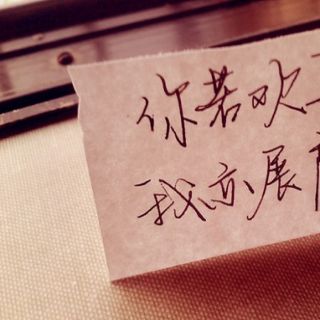 你若欢
我亦展